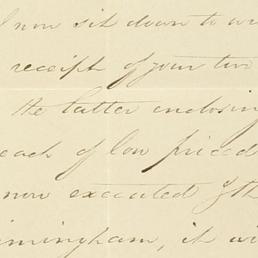 I now sit down to
receipt of your two
the latter enclosing
each of low priced
now executed of th
rmingham, it wi